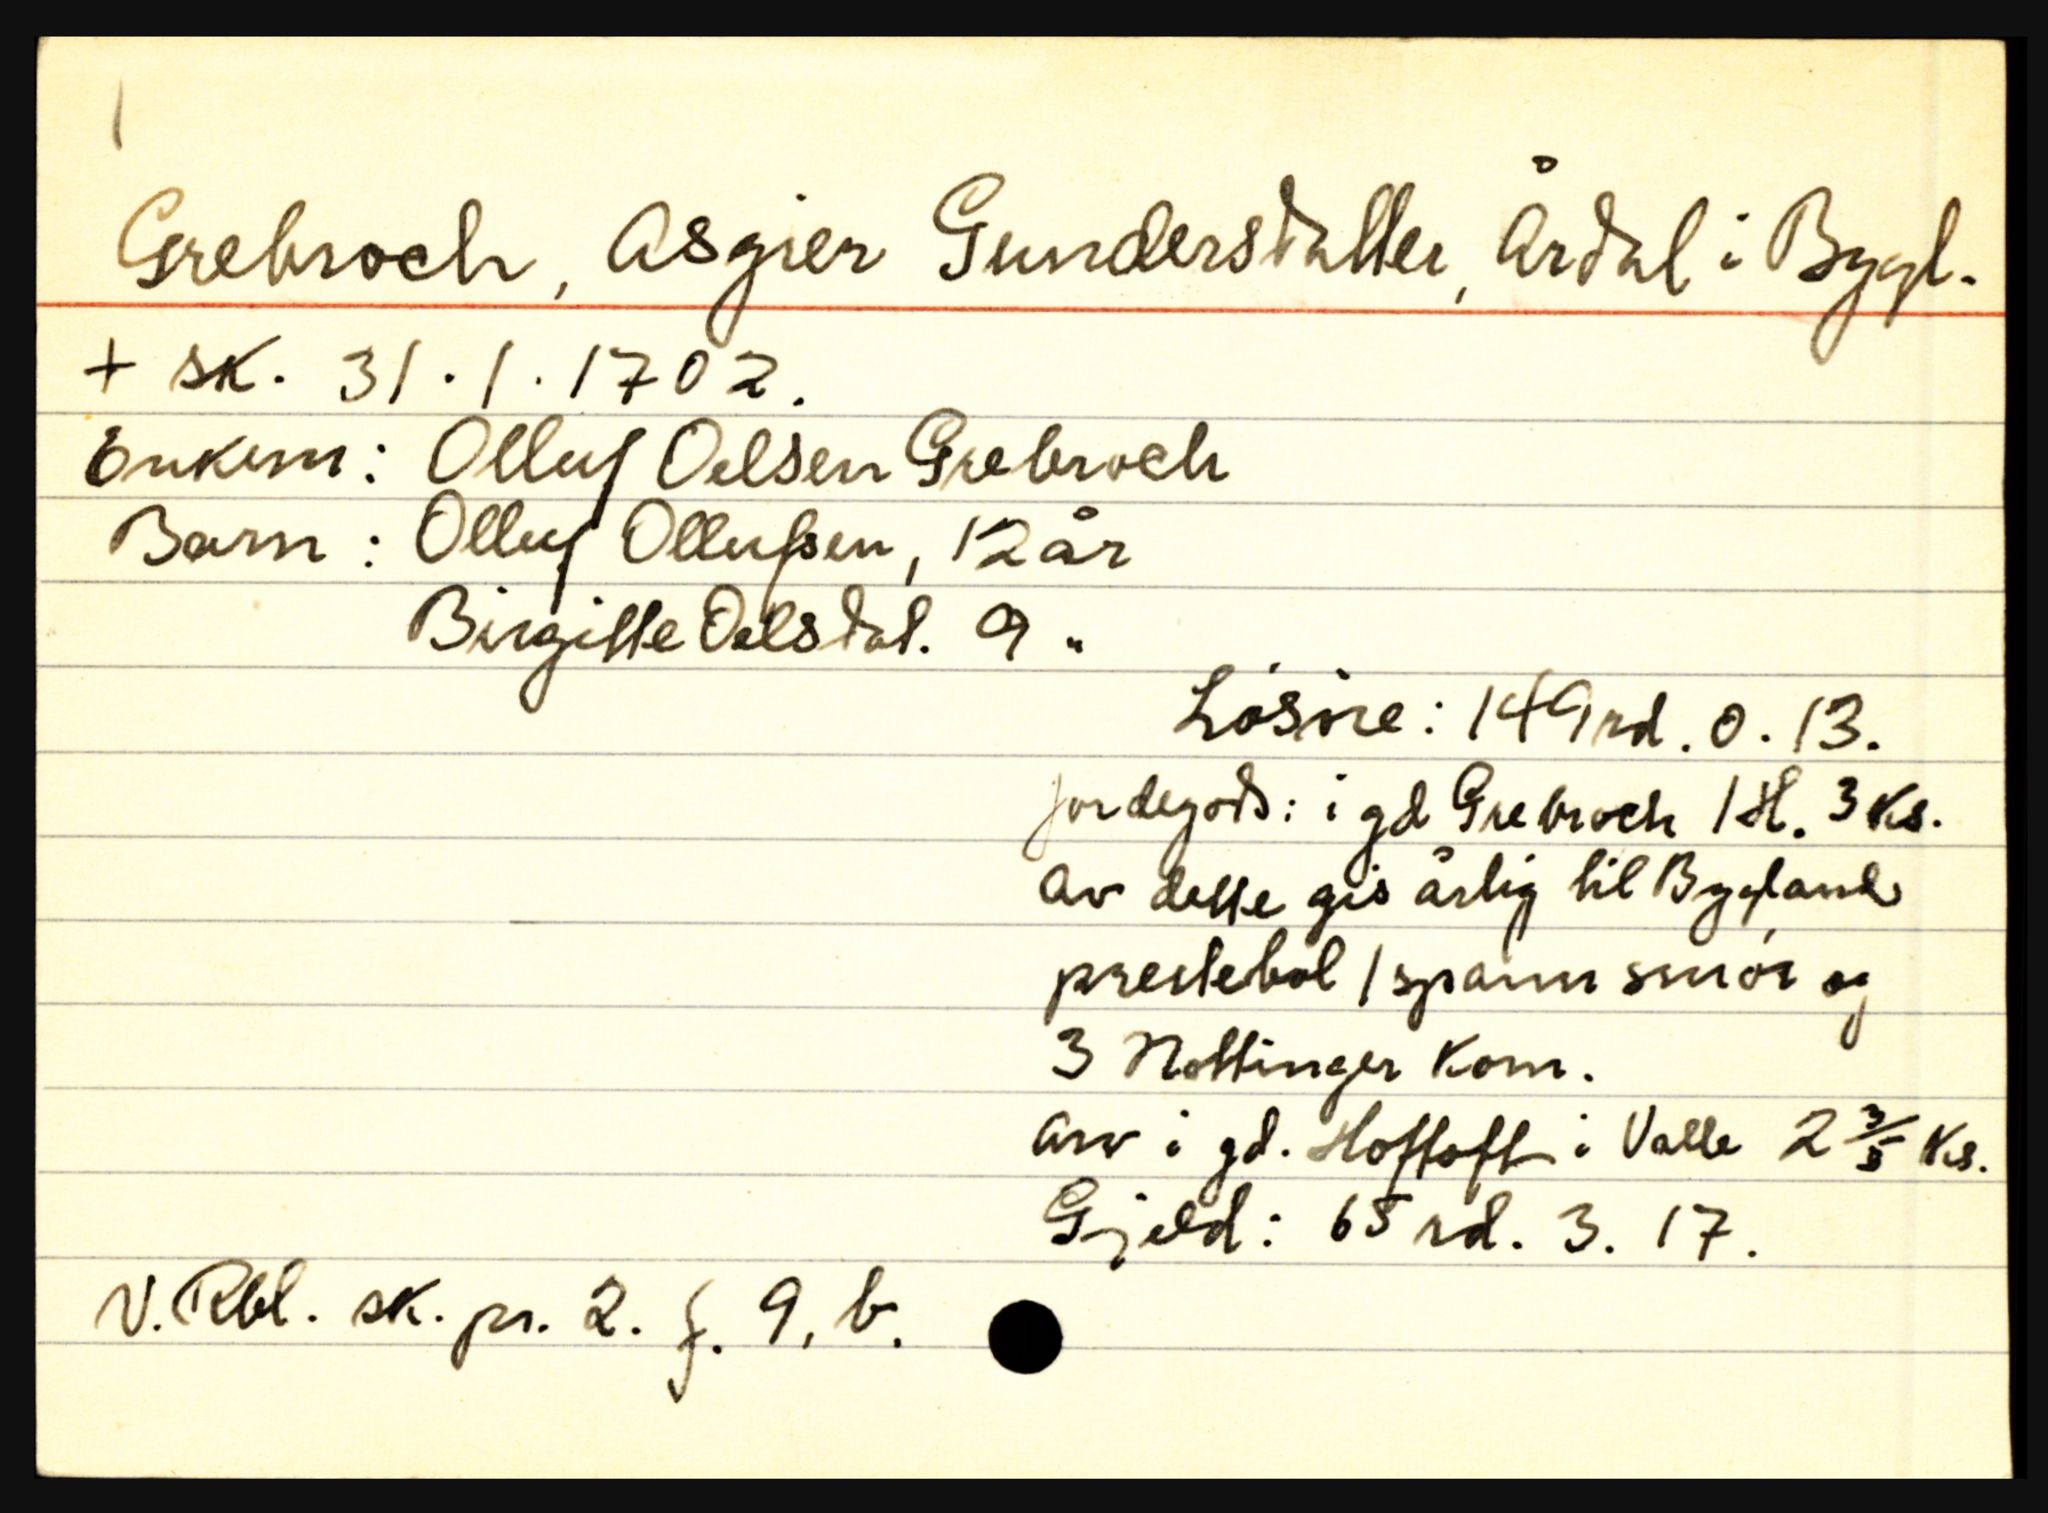 Grebroch, Asgier Gundersdatter, Årdal i Bygl.
+ sk. 31.1.1702.
Enkem: Olluf Oelsen Grebroch
Barn: Olluf Ollufsen, 12 år
Birgitte Oelsdat. 9 "
Lösöre: 149 rd. 0. 13.
Jordegods: i gd Grebroch 1 H. 3 Ks.
av dette gis årlig til Bygland
prestebol 1 spann smör og
3 Nottinger Korn.
Arv i gd. Hoftoft i Valle 2 3/5 Ks.
Gjeld: 65 rd. 3. 17.
V. Rbl. sk. pr. 2. f. 9, b.